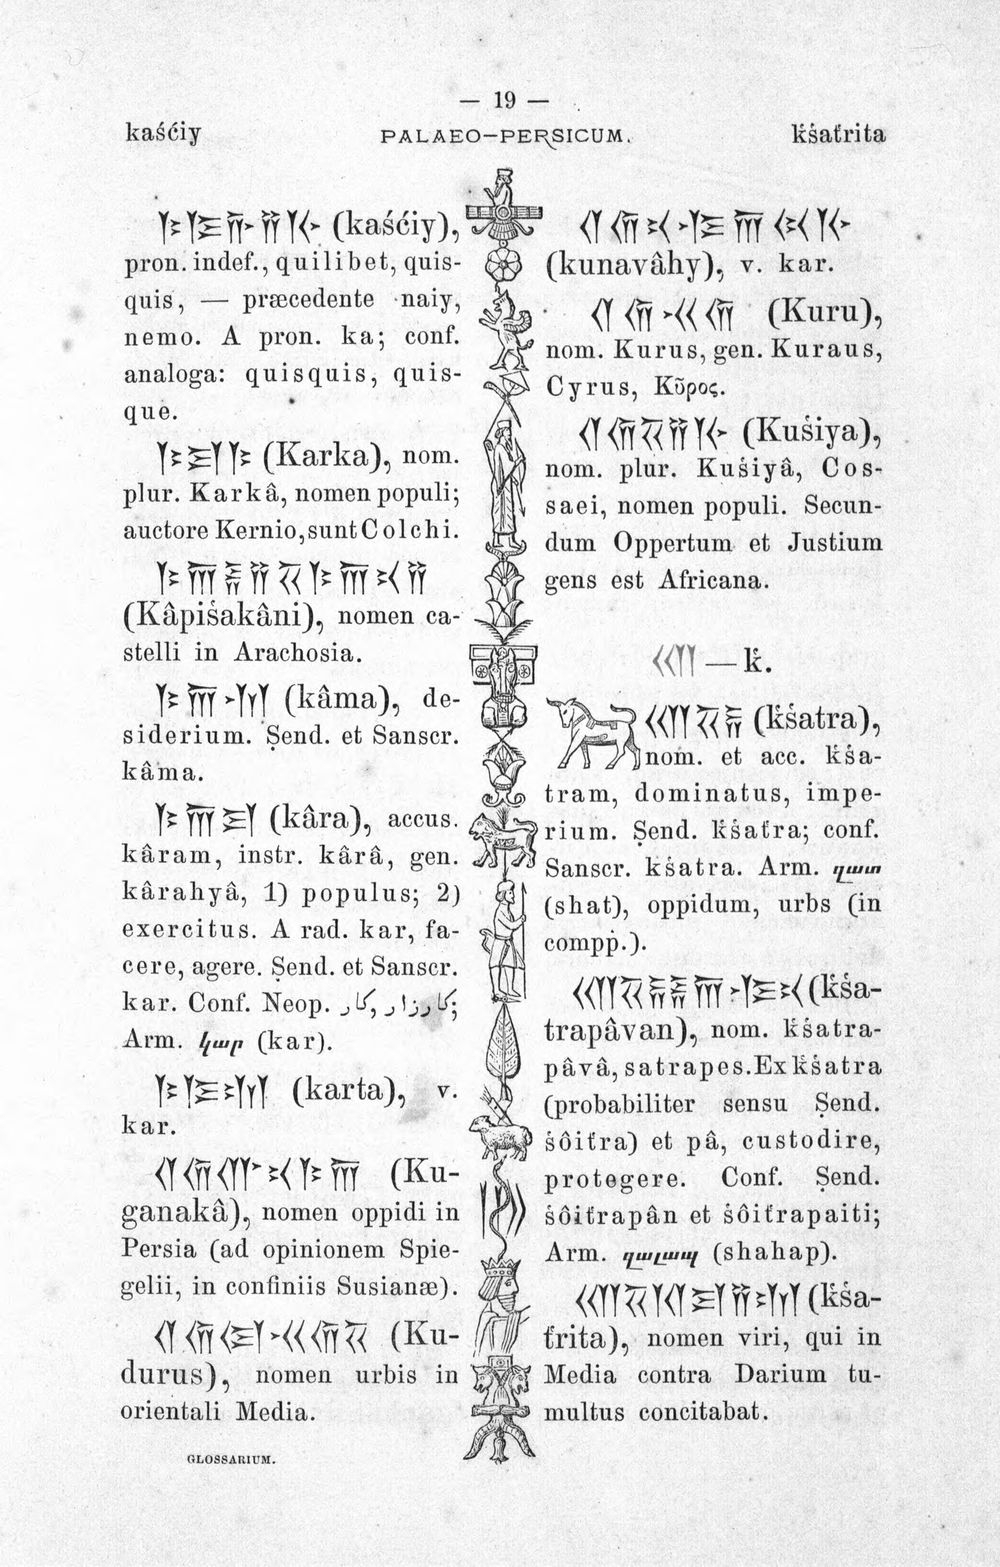 — 19 —
kaśćiy PALAEO-PERSICUM. ḱśat́rita
𐎣𐎿𐎨𐎡𐎹 (kaśćiy),
pron. indef., quilibet, quis-
quis, — præcedente naiy,
nemo. A pron. ka; conf.
analoga: quisquis, quis-
que.
𐎣𐎼𐎣 (Karka), nom.
plur. Karkâ, nomen populi;
auctore Kernio, sunt Colchi.
𐎣𐎠𐎱𐎡𐏁𐎣𐎠𐎴𐎡
(Kâpiśakâni), nomen ca-
stelli in Arachosia.
𐎣𐎠𐎶 (kâma), de-
siderium. Ṣend. et Sanscr.
kâma.
𐎣𐎠𐎼 (kâra), accus.
kâram, instr. kârâ, gen.
kârahyâ, 1) populus; 2)
exercitus. A rad. kar, fa-
cere, agere. Ṣend. et Sanscr.
kar. Conf. Neop. کار, کارزار;
Arm. կար (kar).
(karta), v.
kar.
𐎤𐎢𐎥𐎴𐎣𐎠 (Ku-
ganakâ), nomen oppidi in
Persia (ad opinionem Spie-
gelii, in confiniis Susianæ).
𐎤𐎢𐎯𐎽𐎢𐏁 (Ku-
durus), nomen urbis in
orientali Media.
GLOSSARIUM.
𐎤𐎢𐎴𐎺𐎠𐏃𐎹
(kunavâhy), v. kar.
𐎤𐎢𐎽𐎢 (Kuru),
nom. Kurus, gen. Kuraus,
Cyrus, Κῦρος.
𐎤𐎢𐏁𐎡𐎹 (Kuśiya),
nom. plur. Kuśiyâ, Cos-
saei, nomen populi. Secun-
dum Oppertum et Justium
gens est Africana.
𐎧 — ḱ.
𐎧𐏁𐏂 (ḱśatra),
nom. et acc. ḱśa-
tram, dominatus, impe-
rium. Ṣend. ḱśat́ra; conf.
Sanscr. kśatra. Arm. շատ
(shat), oppidum, urbs (in
compp.).
𐎧𐏁𐏂𐎱𐎠𐎺𐎴 (ḱśa-
trapâvan), nom. ḱśatra-
pâvâ, satrapes. Ex ḱśatra
(probabiliter sensu Ṣend.
śôit́ra) et pâ, custodire,
protegere. Conf. Ṣend.
śôit́rapân et śôit́rapaiti;
Arm. շահապ (shahap).
𐎧𐏁𐎰𐎼𐎡𐎫 (ḱśa-
t́rita), nomen viri, qui in
Media contra Darium tu-
multus concitabat.